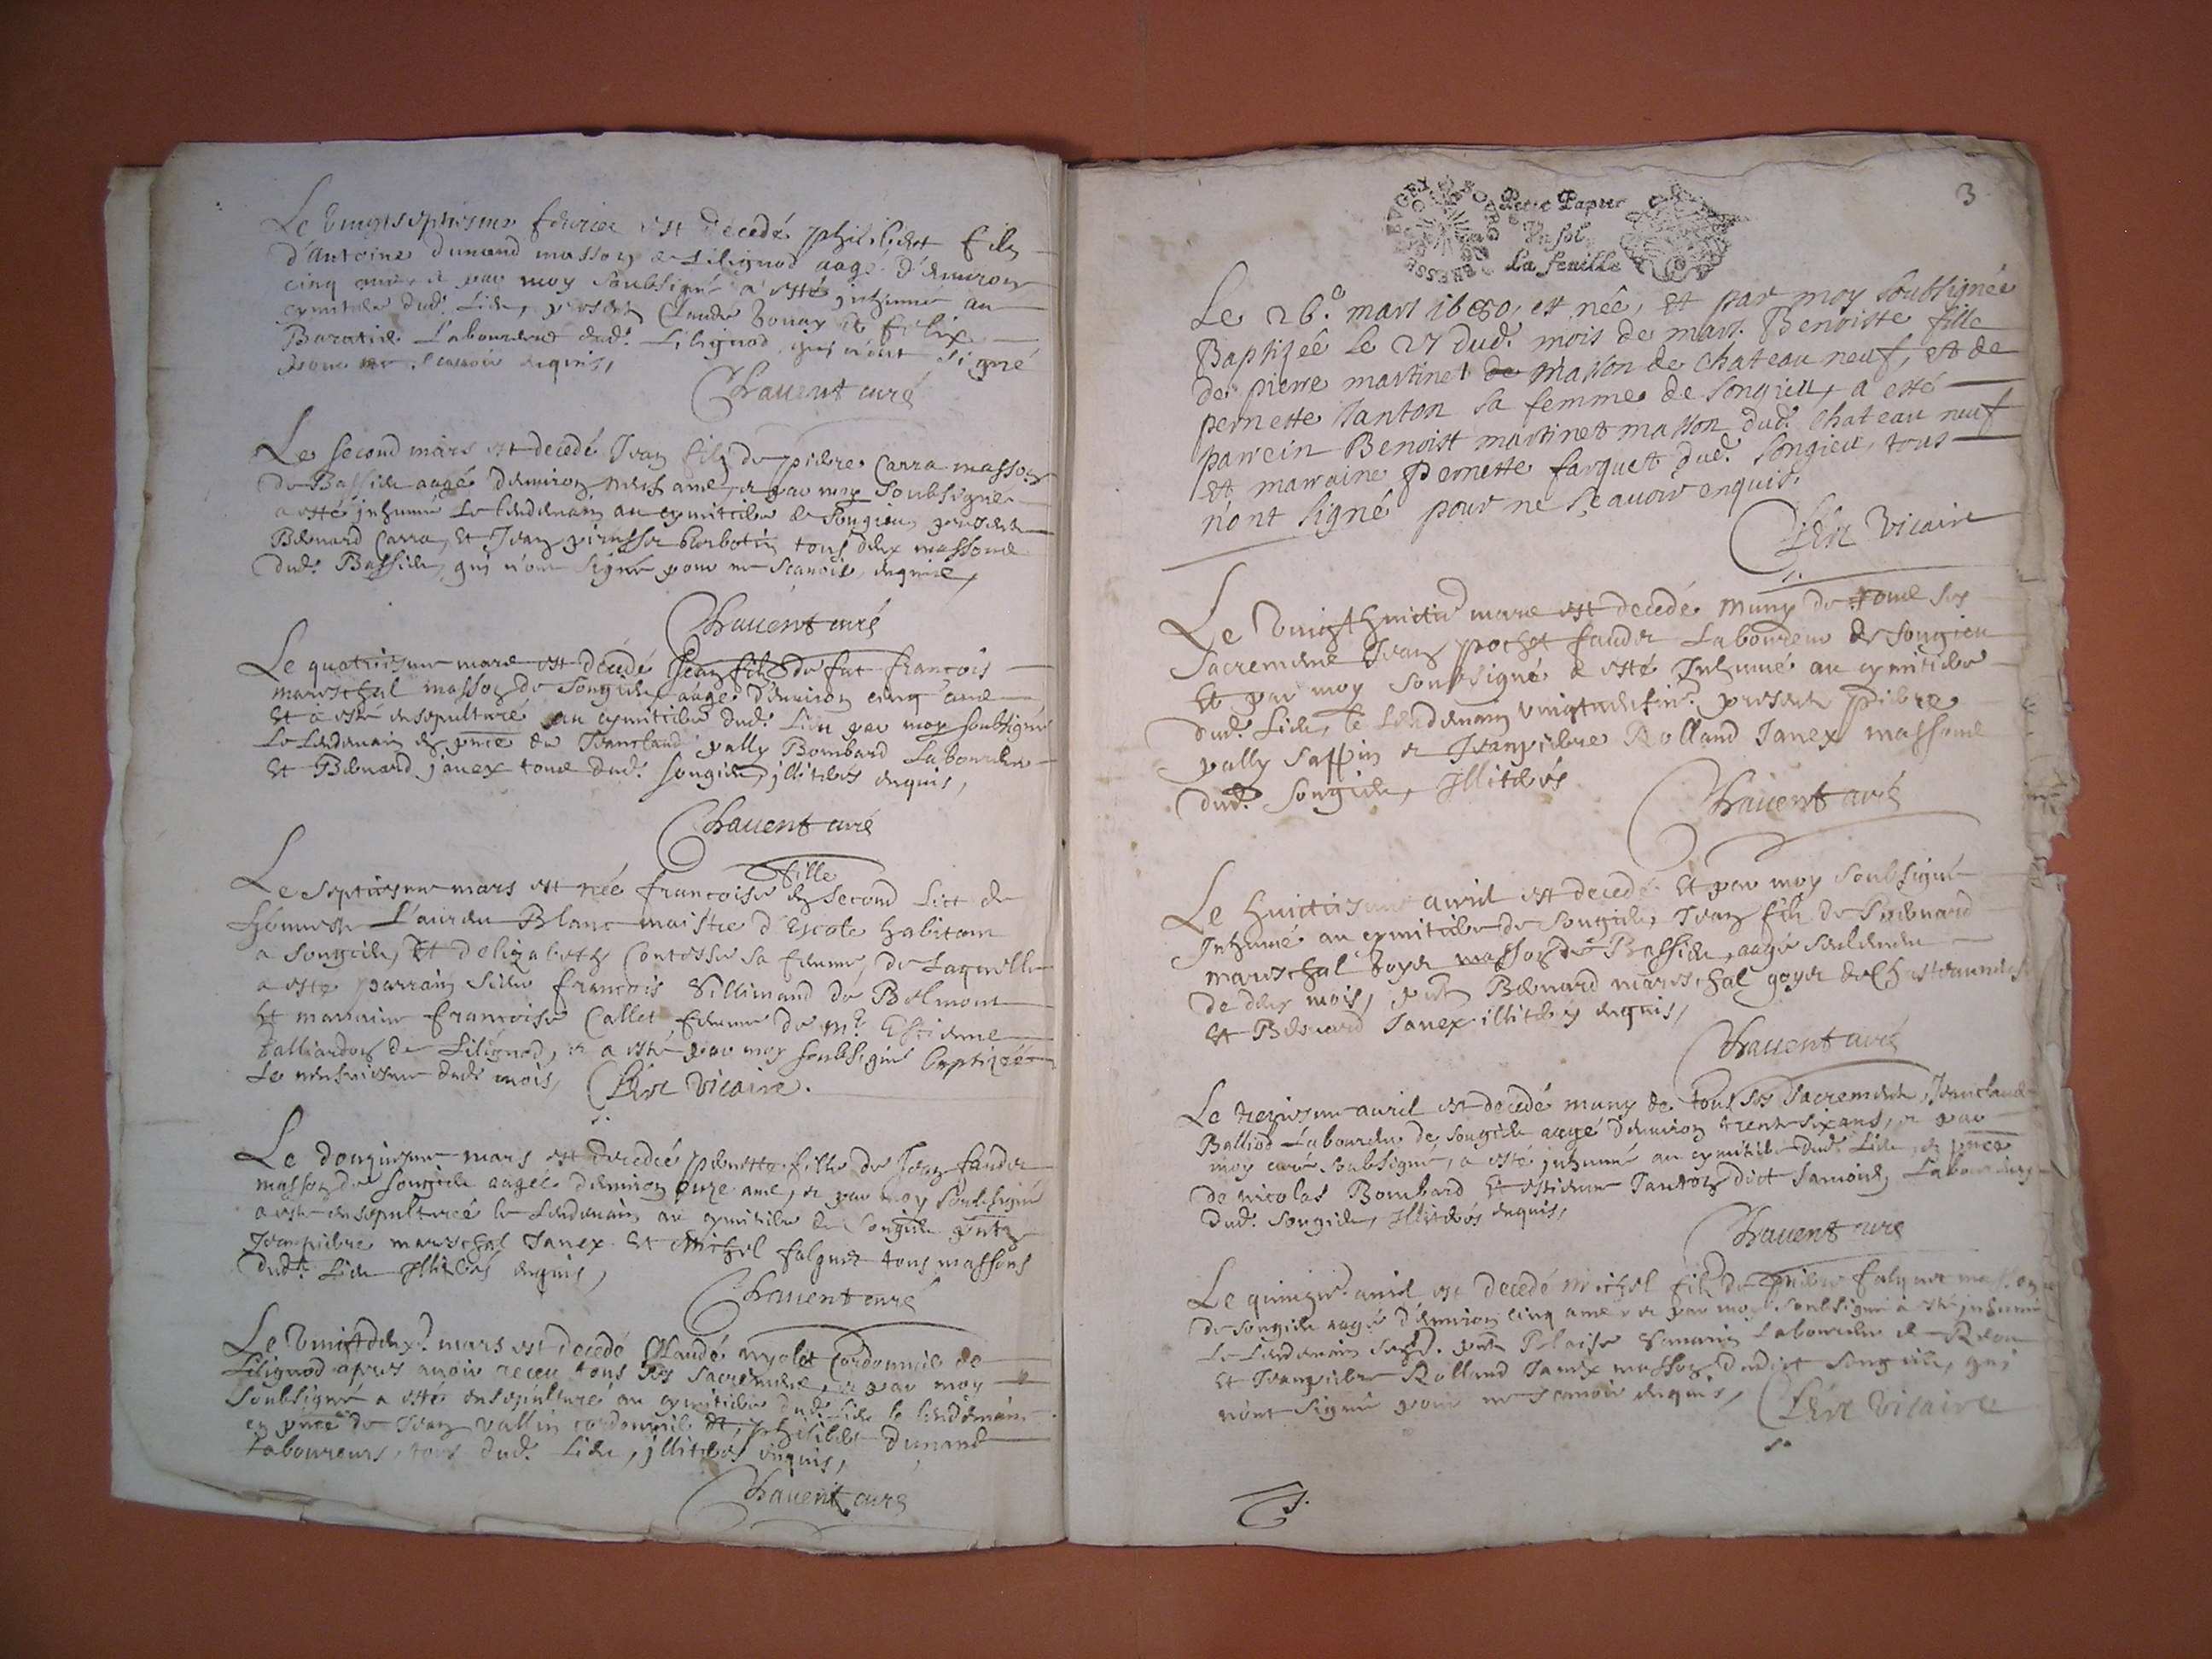 Le vingtseptiesme febvrier est decedé philibert fils
d'Antoine dunand masson de Lilignod aagé d'environ
cinq ans et par moy soubsigné a esté inhumé au
cymitiere dud. lieu, presents Claude bonay et felix
Baratier Laboureurs dud. Lilignod qui n'ont signé
pour ne scavoir enquis,
Chavent curé
Le second mars est decedé Jean fils de pierre Carra masson
de Bassieu aagé d'environ ans, et par moy soubsigné
a esté inhumé le lendemain au cymitiere de Songieu presents
Bernard Carra, et Jean tous deux massons
dud. Bassieu, qui n'ont signé pour ne scavoir, enquis,
Chavent curé
Le quatriesme mars est decedé Jean fils de fut francois
mareschal masson de Songieu aagé d'environ cinq ans
et a esté ensepulturé au cymitiere dud. lieu par moy soubsigné
le lendemain en pnce de Jeanclaud pally Bombard Laboureur
et Bernard janex tous dud. songieu, jlliterés enquis,
Chavent curé
fille
Le septiesme mars est née francoise du second lict de
honneste Laurens Blanc maistre d'Escole habitant
a Songieu, et delizabeth Contesse sa femme, de laquelle
a esté parrain sieur francois Villimand de Belmont
et marraine francoise Callet femme de Mre Estienne
talliardon de Lilignod, et a esté par moy soubsigné baptizée
le neufviesme dud. mois, vicaire.
Le douziesme mars est decedée pernette fille de Jean faudet
masson de Songieu aagée d'environ onze ans, et par moy soubsigné
a esté ensepulturée le lendemain au cymitiere de Songieu pnts
Jeanpierre mareschal Janex et Michel falquet tous massons
dudt. lieu jlliterés enquis,
Chavent curé
Le vingtdeux. mars est decedé Claude nyolet Cordonnier de
Lilignod apres avoir receu tous ses sacrements, et par moy
soubsigné a esté ensepulturé au cymitiere dud. lieu le lendemain
en pnce de Jean vallin cordonnier et philibert dunand
Laboureurs, tous dud. lieu, jlliterés enquis,
Chavent curé
3
Petit Papier
Un sol
La feuille
BRESSE BUGEY
Le 26.e mars 1680, est née, et par moy soubsignée
Baptizée le 27 dud. mois de mars. Benoiste fille
de pierre martinet de masson de chateau neuf, et de
pernette Janton sa femme de songieu, a esté
parrein Benoist martinet masson dud. chateau neuf
et marraine Pernette farquet dud. songieu, tous
n'ont signé pour ne sçavoir enquis.
vicaire
Le vingthuictie mars est decedé muny de tous ses
sacrements Jean pochet faudet Laboureur de Songieu
et par moy soubsigné a esté Inhumé au cymitiere
dud. lieu, le lendemain vingtneufvie. presents pierre
pally sappin et Jeanpierre Rolland Janex massons
dud. songieu, jlliterés
Chavent curé
Le huictiesme avril est decedé et par moy soubsigné
Inhumé au cymitiere de songieu, Jean fils de Bernard
mareschal goyet masson de Bassieu, aagé seulement
de deux mois, pnts Bernard mareschal goyet de Chasteauneuf
et Bernard Janex illiterés enquis,
Chavent curé
Le treziesme avril est decedé muny de tous ses sacrements, Jeanclaude
Balliod Laboureur de songieu aagé d'environ trente six ans, et par
moy curé soubsigné, a esté inhumé au cymitiere dud. lieu, en pnce
de nicolas Bombard et estienne Janton dict Laboureurs
dud. songieu, jlliterés enquis,
Chavent curé
Le quinzie. avril est decedé michel fils de pierre falquet masson
de songieu aagé d'environ cinq ans et par moy soubsigné a esté inhumé
le lendemain pnts Blaise Laboureur de
et Jeanpierre Rolland Janex masson dudict songieu, qui
n'ont signé pour ne scavoir enquis,
vicaire